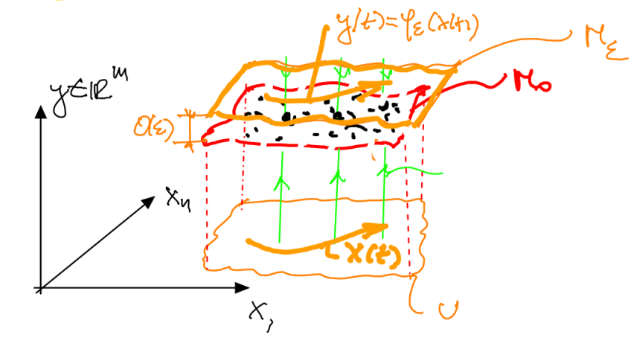 y(t)=φ_ε(x(t))
M_ε
y∈ℝ^m
M_0
O(ε)
x_n
x(t)
x_1
U